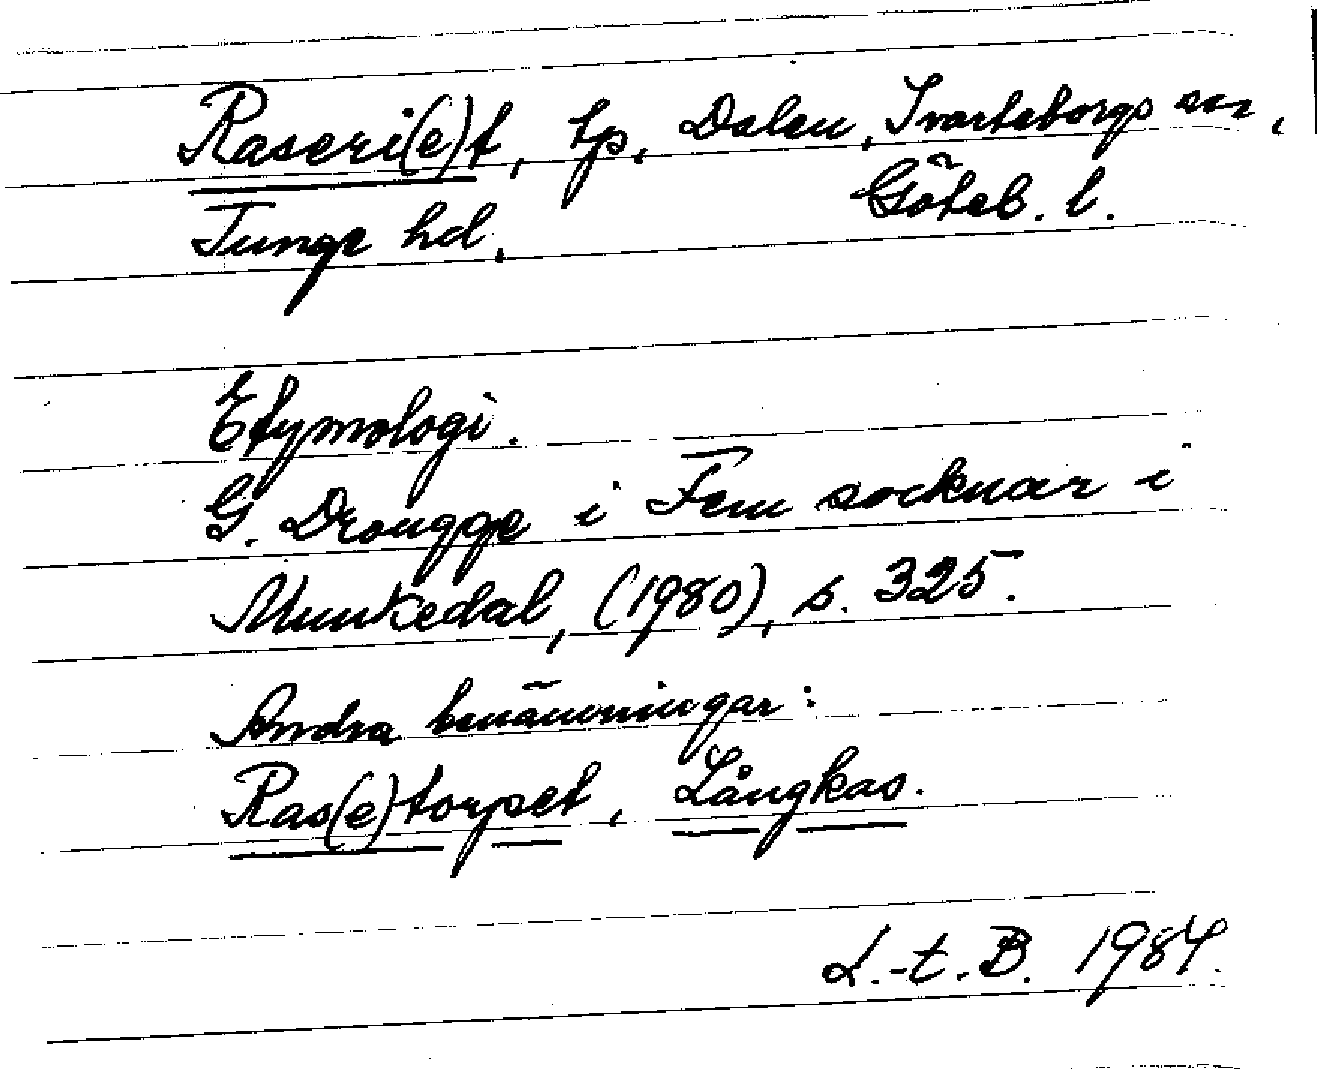 Raseri(e)t, tp, Dalen, Svarteborgs sn,
Tunge hd. Göteb. l.
Etymologi.
G. Drougge i Fem socknar i
Munkedal, (1980), s. 325.
Andra benämningar:
Ras(e)torpet, Långkas.
L.-t. B. 1984.